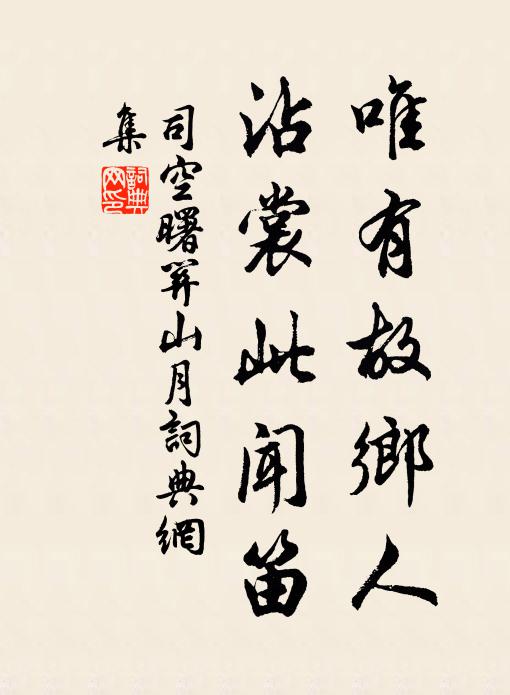 唯有故鄉人
沾裳此聞笛
司空曙關山月詞典網
集
詞典網印